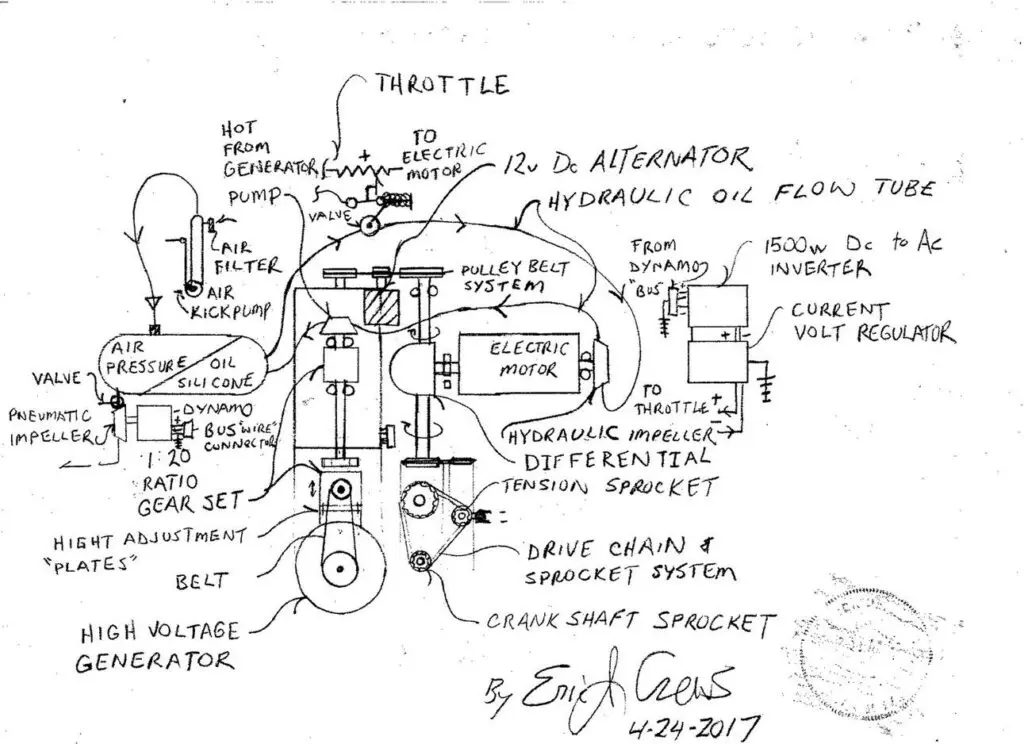 THROTTLE
HOT
FROM
GENERATOR
+
TO
ELECTRIC
MOTOR
12v DC ALTERNATOR
PUMP
VALVE
HYDRAULIC OIL FLOW TUBE
AIR
FILTER
AIR
KICKPUMP
PULLEY BELT
SYSTEM
FROM
DYNAMO
"BUS"
1500w DC to AC
INVERTER
+ -
CURRENT
VOLT REGULATOR
AIR
PRESSURE
OIL
SILICONE
ELECTRIC
MOTOR
VALVE
PNEUMATIC
IMPELLER
DYNAMO
BUS "WIRE"
CONNECTOR
TO
THROTTLE
+
-
1:20
RATIO
GEAR SET
HYDRAULIC IMPELLER
DIFFERENTIAL
TENSION SPROCKET
HIGHT ADJUSTMENT
"PLATES"
BELT
DRIVE CHAIN &
SPROCKET SYSTEM
CRANK SHAFT SPROCKET
HIGH VOLTAGE
GENERATOR
By Eric J Crews
4-24-2017